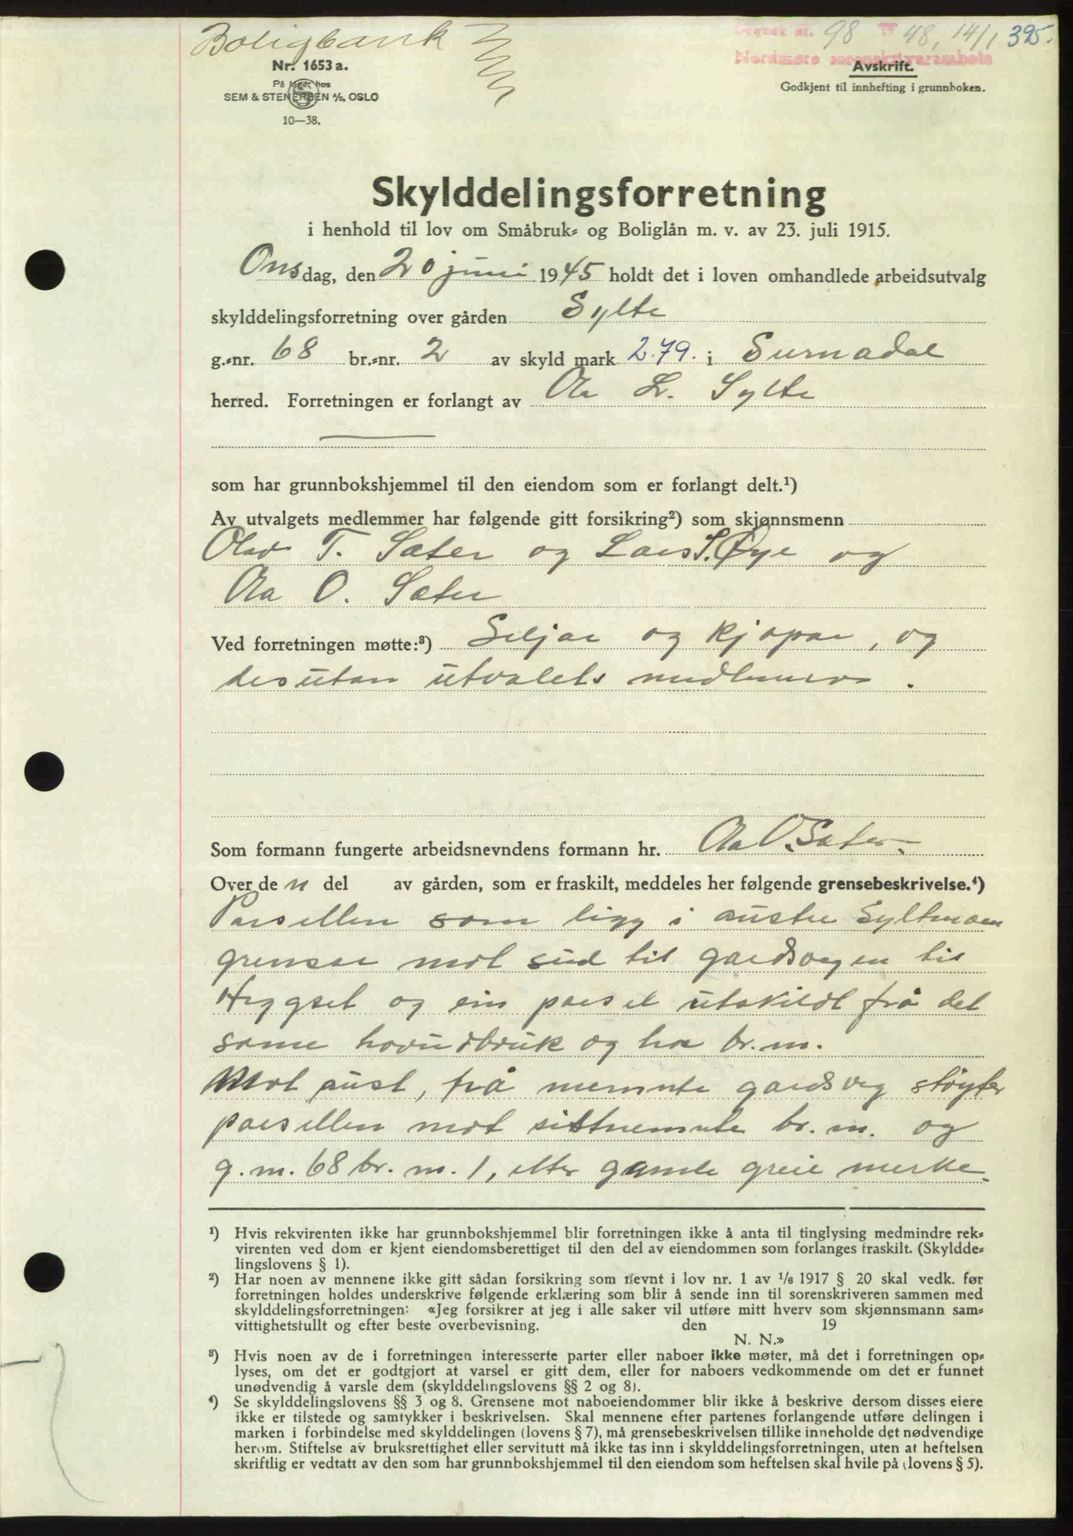 Boligbank
Dagbok nr. 98 19 48, 14/1 395.
Nordmøre sorenskriverembete
Nr. 1653 a.
På lager hos
SEM & STENERSEN A/S, OSLO
10—38.
Avskrift.
Godkjent til innhefting i grunnboken.
Skylddelingsforretning
i henhold til lov om Småbruk- og Boliglån m. v. av 23. juli 1915.
Onsdag, den 20 juni 1945 holdt det i loven omhandlede arbeidsutvalg
skylddelingsforretning over gården Sylte
g.-nr. 68 br.-nr. 2 av skyld mark 2.79. i Surnadal
herred. Forretningen er forlangt av Ola L. Sylte
som har grunnbokshjemmel til den eiendom som er forlangt delt.¹)
Av utvalgets medlemmer har følgende gitt forsikring²) som skjønnsmenn
Olav T. Sæter og Lars S. Øye og
Ola O. Sæter
Ved forretningen møtte:³) Seljar og kjøpar, og
desutan utvalets medlemer.
Som formann fungerte arbeidsnevndens formann hr. Ola O. Sæter.
Over de n del av gården, som er fraskilt, meddeles her følgende grensebeskrivelse.⁴)
Parsellen som ligg i austre Syltmoen
grensar mot sud til gardsvegen til
Heggset og ein parsel utskildt frå det
same hovudbruk og har br. nr.
Mot aust, frå nemnte gardsveg støyter
parsellen mot sistnemnte br. nr. og
g. nr. 68 br. nr. 1, etter gamle greie merke.
¹) Hvis rekvirenten ikke har grunnbokshjemmel blir forretningen ikke å anta til tinglysing medmindre rek-
virenten ved dom er kjent eiendomsberettiget til den del av eiendommen som forlanges fraskilt. (Skyldde-
lingslovens § 1).
²) Har noen av mennene ikke gitt sådan forsikring som nevnt i lov nr. 1 av 1/6 1917 § 20 skal vedk. før
forretningen holdes underskrive følgende erklæring som blir å sende inn til sorenskriveren sammen med
skylddelingsforretningen: «Jeg forsikrer at jeg i alle saker vil utføre mitt hverv som skjønnsmann sam-
vittighetsfullt og efter beste overbevisning. den 19
N. N.»
³) Hvis noen av de i forretningen interesserte parter eller naboer ikke møter, må det i forretningen op-
lyses, om det er godtgjort at varsel er gitt dem, eller for naboers vedkommende om det er funnet
unødvendig å varsle dem (skylddelingslovens §§ 2 og 8).
⁴) Se skylddelingslovens §§ 3 og 8. Grensene mot naboeiendommer blir ikke å beskrive dersom disses eiere
ikke er tilstede og samtykker i beskrivelsen. Skal mennene efter partenes forlangende utføre delingen i
marken i forbindelse med skylddelingen (lovens § 7), må grensebeskrivelsen tillike inneholde det nødvendige
herom. Stiftelse av bruksrettighet eller servitutt må ikke tas inn i skylddelingsforretningen, uten at heftelsen
skriftlig er vedtatt av den som har grunnbokshjemmel til den eiendom som heftelsen skal hvile på (lovens § 5).